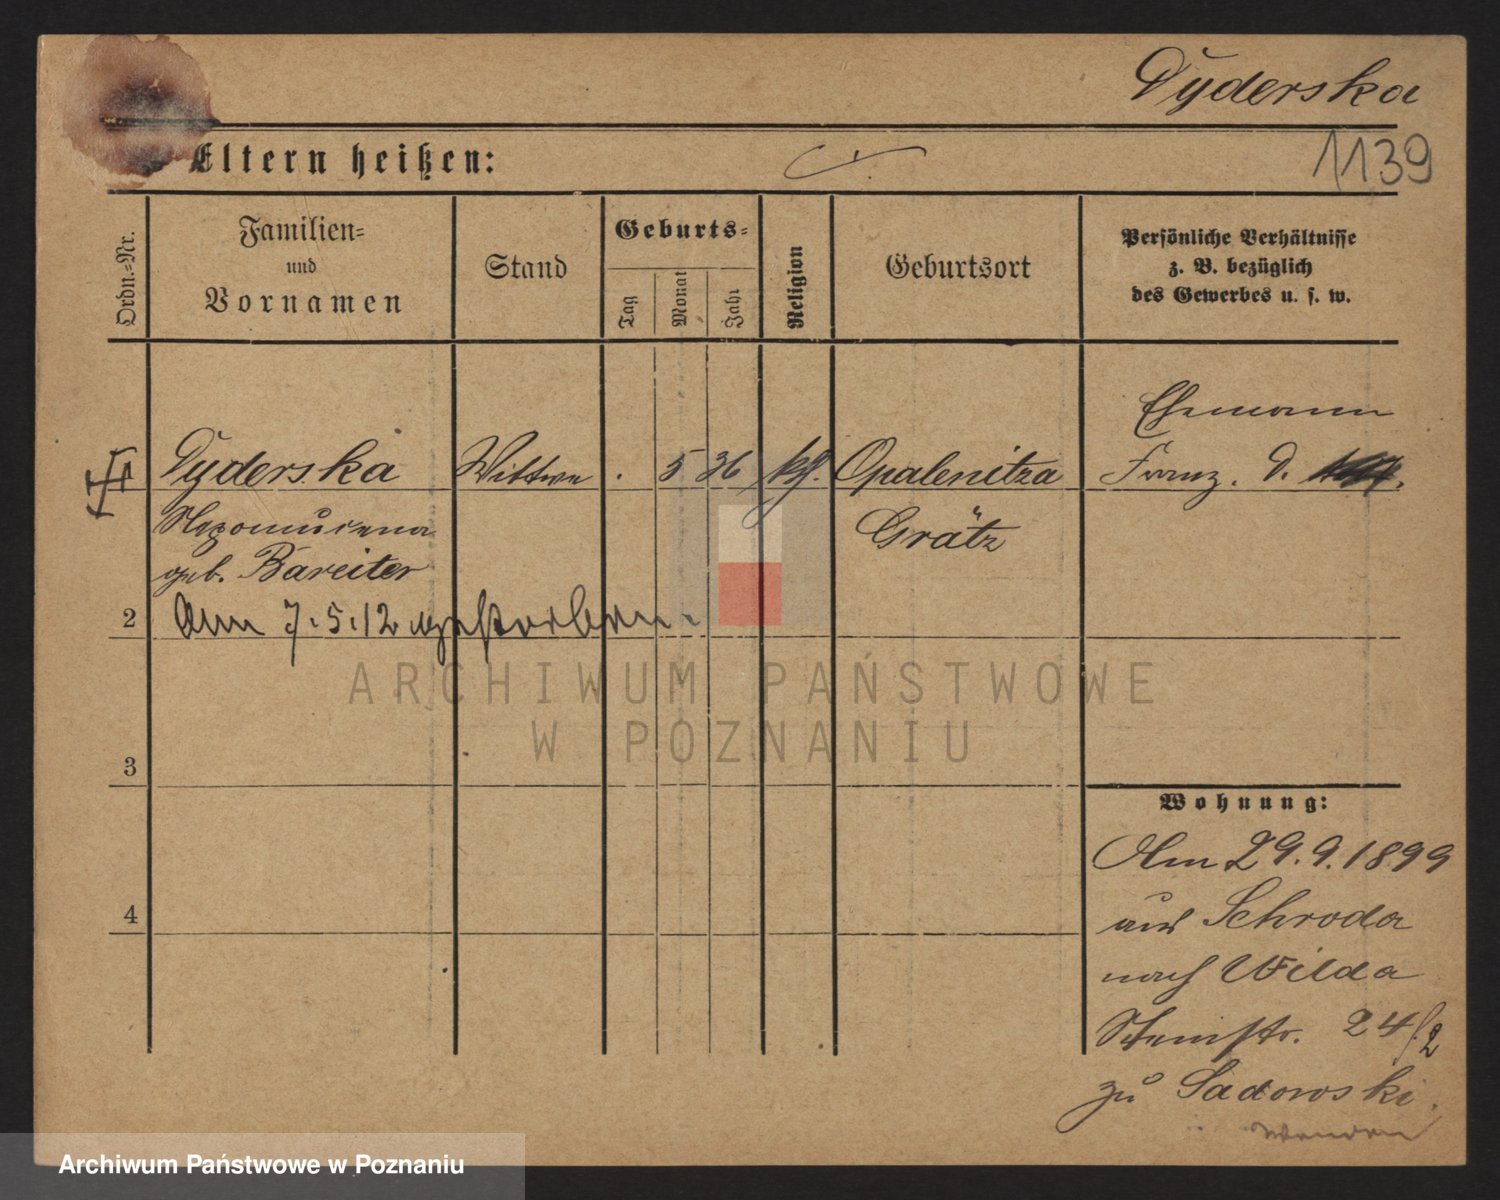 Dyderska
Eltern heißen:
1139
Ordn.=Nr.
Familien=
und
Vornamen
Stand
Geburts=
Tag
Monat
Jahr
Religion
Geburtsort
Persönliche Verhältnisse
z. B. bezüglich
des Gewerbes u. s. w.
Ehemann
1 Dyderska Wittwe . 5 36 kth. Opalenitza Franz. D.
Nepomucena Grätz
geb. Bareiter
2 Am 7.5.12 gestorben.
ARCHIWUM PAŃSTWOWE
W POZNANIU
3
Wohnung:
Am 29.9.1899
aus Schroda
4
nach Wilda
24/2
zu Sadowski.
wenden
Archiwum Państwowe w Poznaniu